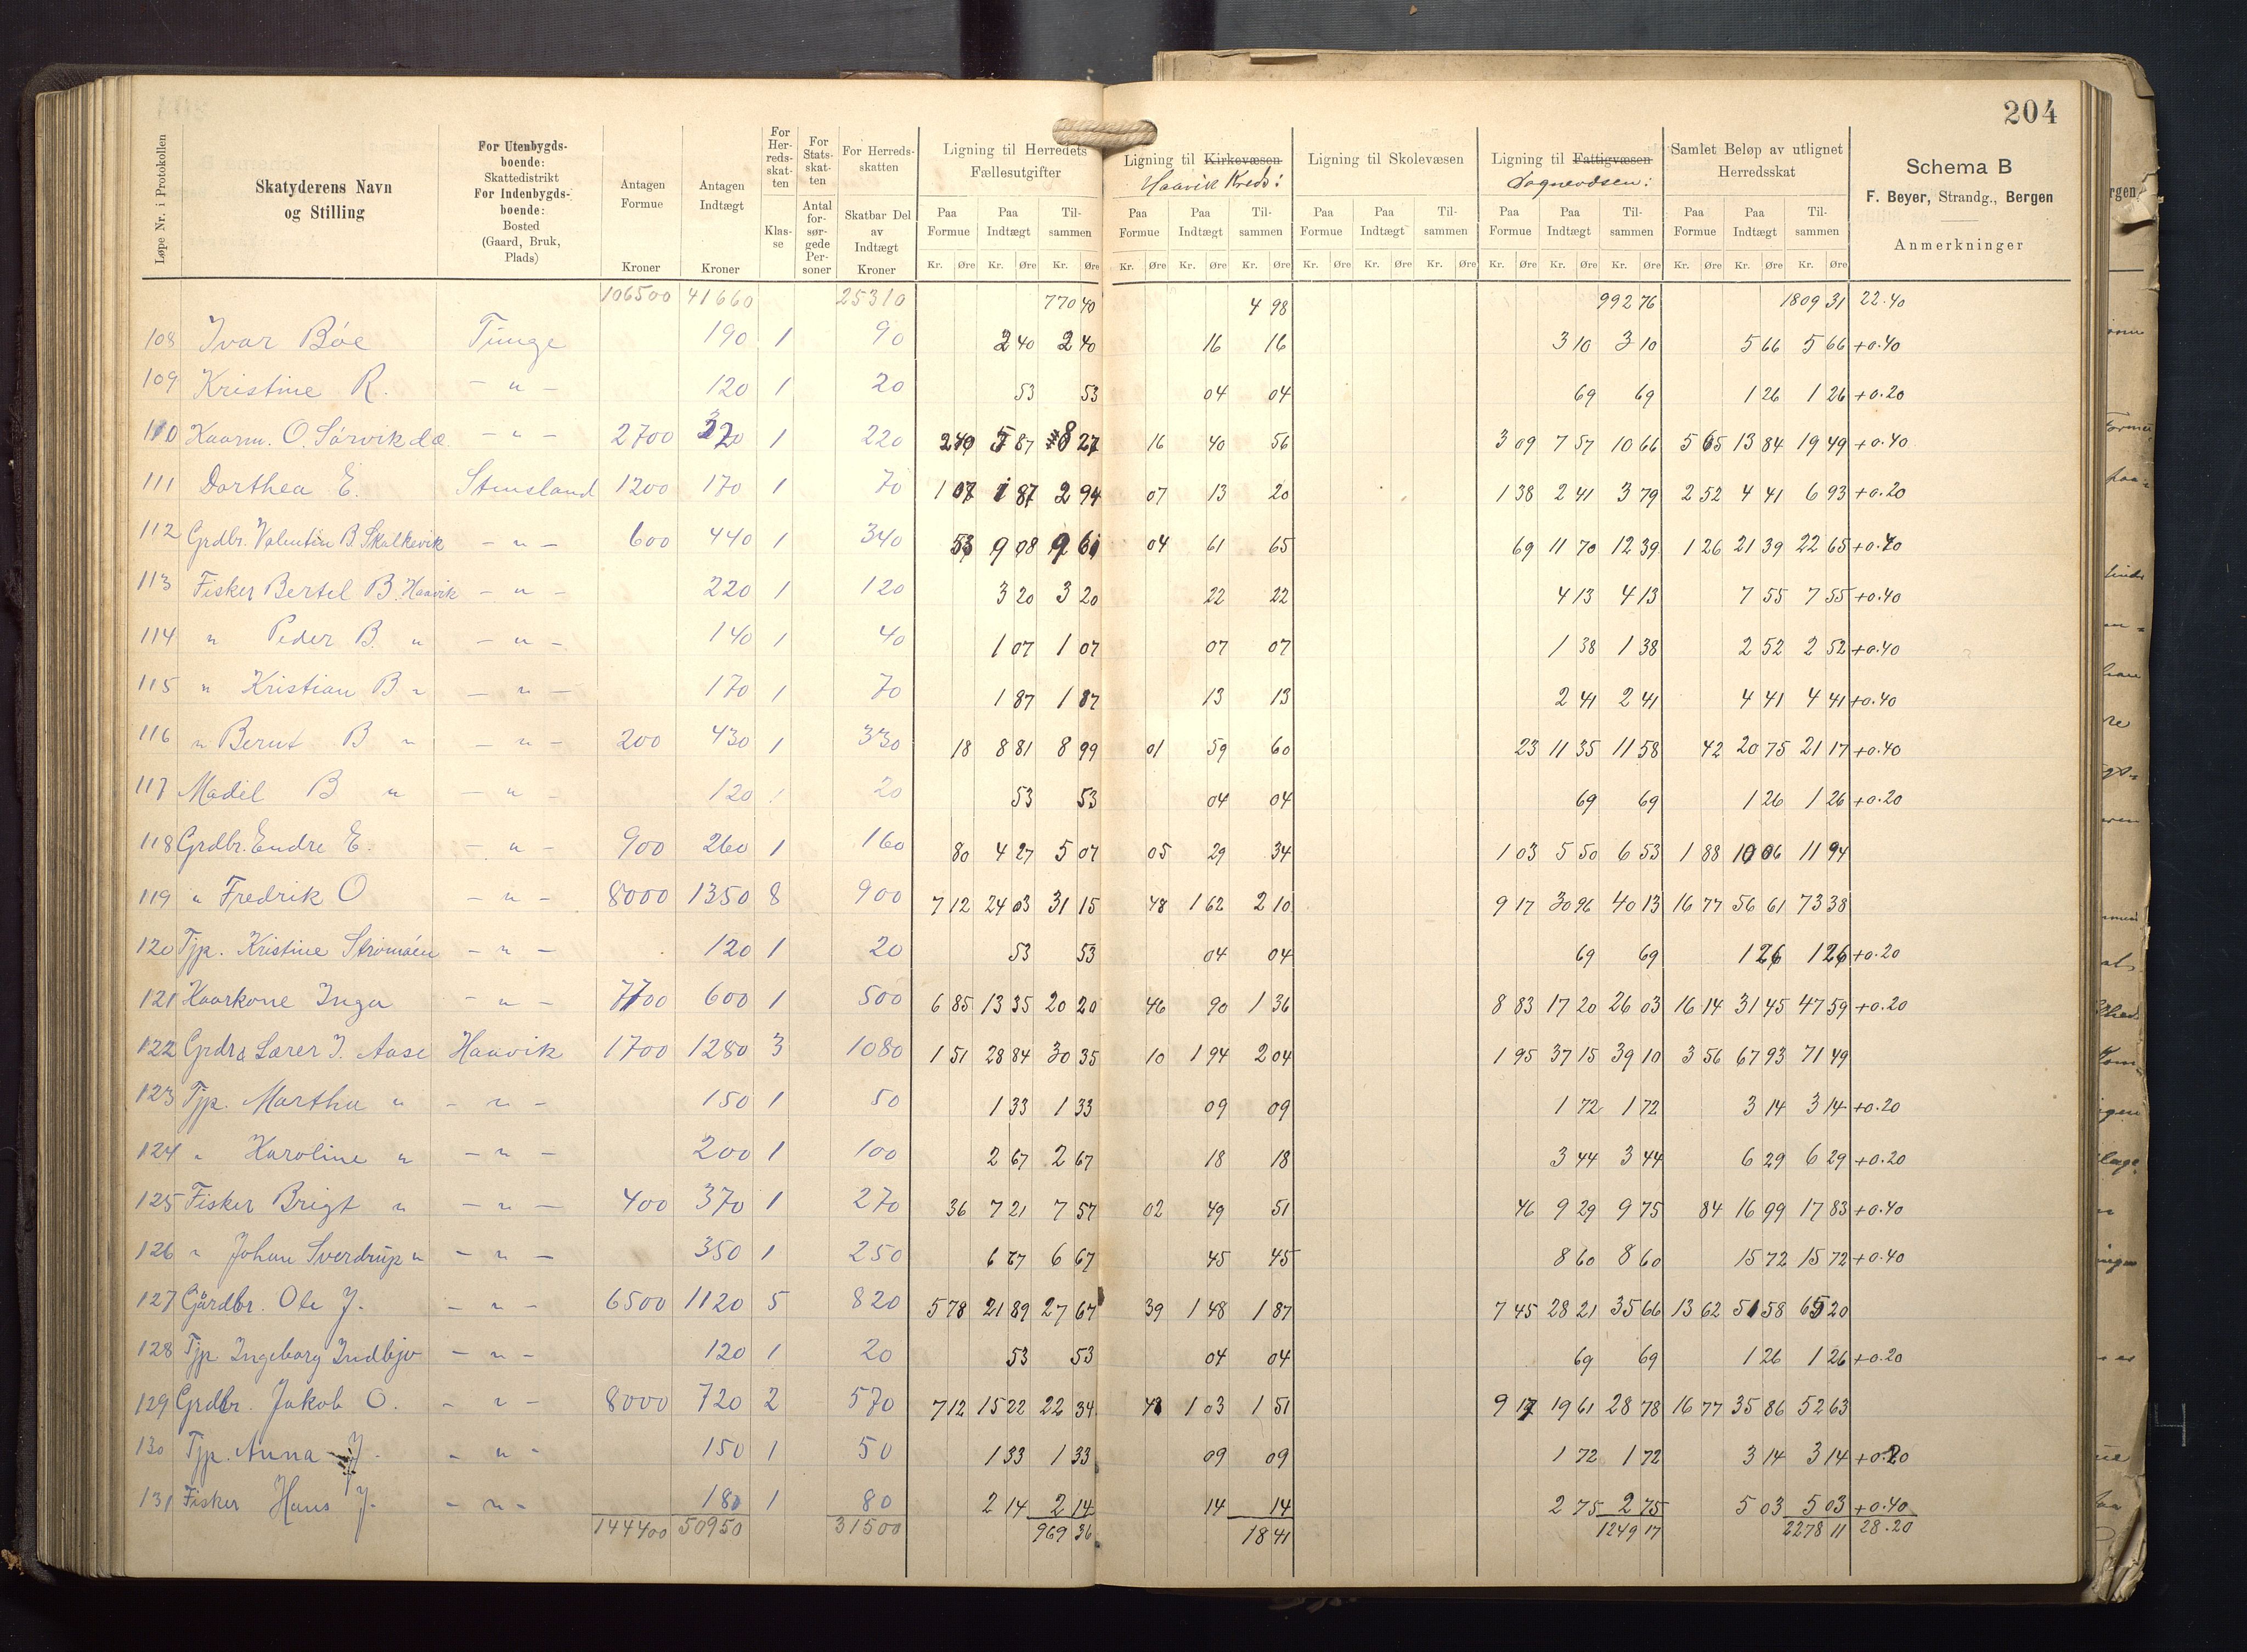 204
Løpe Nr. i Protokollen
Skatyderens Navn og Stilling
For Utenbygds-boende: Skattedistrikt For Indenbygds-boende: Bosted (Gaard, Bruk, Plads)
Antagen Formue Kroner
Antagen Indtægt Kroner
For Herreds-skatten Klas-se
For Stats-skat-ten Antal for-sør-gede Per-soner
For Herreds-skatten Skatbar Del av Indtægt Kroner
Ligning til Herredets Fællesutgifter
Ligning til Kirkevæsen Haavik Kreds:
Ligning til Skolevæsen
Ligning til Fattigvæsen Sogneudsen:
Samlet Beløp av utlignet Herredsskat
Schema B
F. Beyer, Strandg., Bergen
Anmerkninger
Paa Formue Paa Indtægt Til-sammen Paa Formue Paa Indtægt Til-sammen Paa Formue Paa Indtægt Til-sammen Paa Formue Paa Indtægt Til-sammen Paa Formue Paa Indtægt Til-sammen
Kr. Øre Kr. Øre Kr. Øre Kr. Øre Kr. Øre Kr. Øre Kr. Øre Kr. Øre Kr. Øre Kr. Øre Kr. Øre Kr. Øre Kr. Øre Kr. Øre Kr. Øre
106500 41660 25310 770 40 4 98 992 76 1809 31 22.40
108 Ivar Bøe Tunge 190 1 90 2 40 2 40 16 16 3 10 3 10 5 66 5 66 +0.40
109 Kristine R. - " - 120 1 20 53 53 04 04 69 69 1 26 1 26 +0.20
110 Kaarm. O. Sørvikdæ - " - 2700 320 1 220 2 40 5 87 8 27 16 40 56 3 09 7 57 10 66 5 65 13 84 19 49 +0.40
111 Dorthea E. Stensland 1200 170 1 70 1 07 1 87 2 94 07 13 20 1 38 2 41 3 79 2 52 4 41 6 93 +0.20
112 Grdbr. Valentin B. Skalkevik - " - 600 440 1 340 53 9 08 9 61 04 61 65 69 11 70 12 39 1 26 21 39 22 65 +0.40
113 Fisker Bertel B. Haavik - " - 220 1 120 3 20 3 20 22 22 4 13 4 13 7 55 7 55 +0.40
114 " Peder B. " - " - 140 1 40 1 07 1 07 07 07 1 38 1 38 2 52 2 52 +0.40
115 " Kristian B " - " - 170 1 70 1 87 1 87 13 13 2 41 2 41 4 41 4 41 +0.40
116 " Bernt B " - " - 200 430 1 330 18 8 81 8 99 01 59 60 23 11 35 11 58 42 20 75 21 17 +0.40
117 Madel B " - " - 120 1 20 53 53 04 04 69 69 1 26 1 26 +0.20
118 Grdbr. Endre E. - " - 900 260 1 160 80 4 27 5 07 05 29 34 1 03 5 50 6 53 1 88 10 06 11 94
119 " Fredrik O - " - 8000 1350 8 900 7 12 24 03 31 15 48 1 62 2 10 9 17 30 96 40 13 16 77 56 61 73 38
120 Tjp. Kristine Strömöen - " - 120 1 20 53 53 04 04 69 69 1 26 1 26 +0.20
121 Kaarkone Inga - " - 7700 600 1 500 6 85 13 35 20 20 46 90 1 36 8 83 17 20 26 03 16 14 31 45 47 59 +0.20
122 Grdr & Lærer J. Aase Haavik 1700 1280 3 1080 1 51 28 84 30 35 10 1 94 2 04 1 95 37 15 39 10 3 56 67 93 71 49
123 Tjp. Martha " - " - 150 1 50 1 33 1 33 09 09 1 72 1 72 3 14 3 14 +0.20
124 " Karoline " - " - 200 1 100 2 67 2 67 18 18 3 44 3 44 6 29 6 29 +0.20
125 Fisker Brigt " - " - 400 370 1 270 36 7 21 7 57 02 49 51 46 9 29 9 75 84 16 99 17 83 +0.40
126 " Johan Sverdrup " - " - 350 1 250 6 67 6 67 45 45 8 60 8 60 15 72 15 72 +0.40
127 Gårdbr. Ole J. - " - 6500 1120 5 820 5 78 21 89 27 67 39 1 48 1 87 7 45 28 21 35 66 13 62 51 58 65 20
128 Tjp Ingeborg Indbjo - " - 120 1 20 53 53 04 04 69 69 1 26 1 26 +0.20
129 Grdbr. Jakob O. - " - 8000 720 2 570 7 12 15 22 22 34 48 1 03 1 51 9 17 19 61 28 78 16 77 35 86 52 63
130 Tjp. Anna J. - " - 150 1 50 1 33 1 33 09 09 1 72 1 72 3 14 3 14 +0.20
131 Fisker Hans J. - " - 180 1 80 2 14 2 14 14 14 2 75 2 75 5 03 5 03 +0.40
144400 50950 31500 969 36 18 41 1249 17 2278 11 28.20